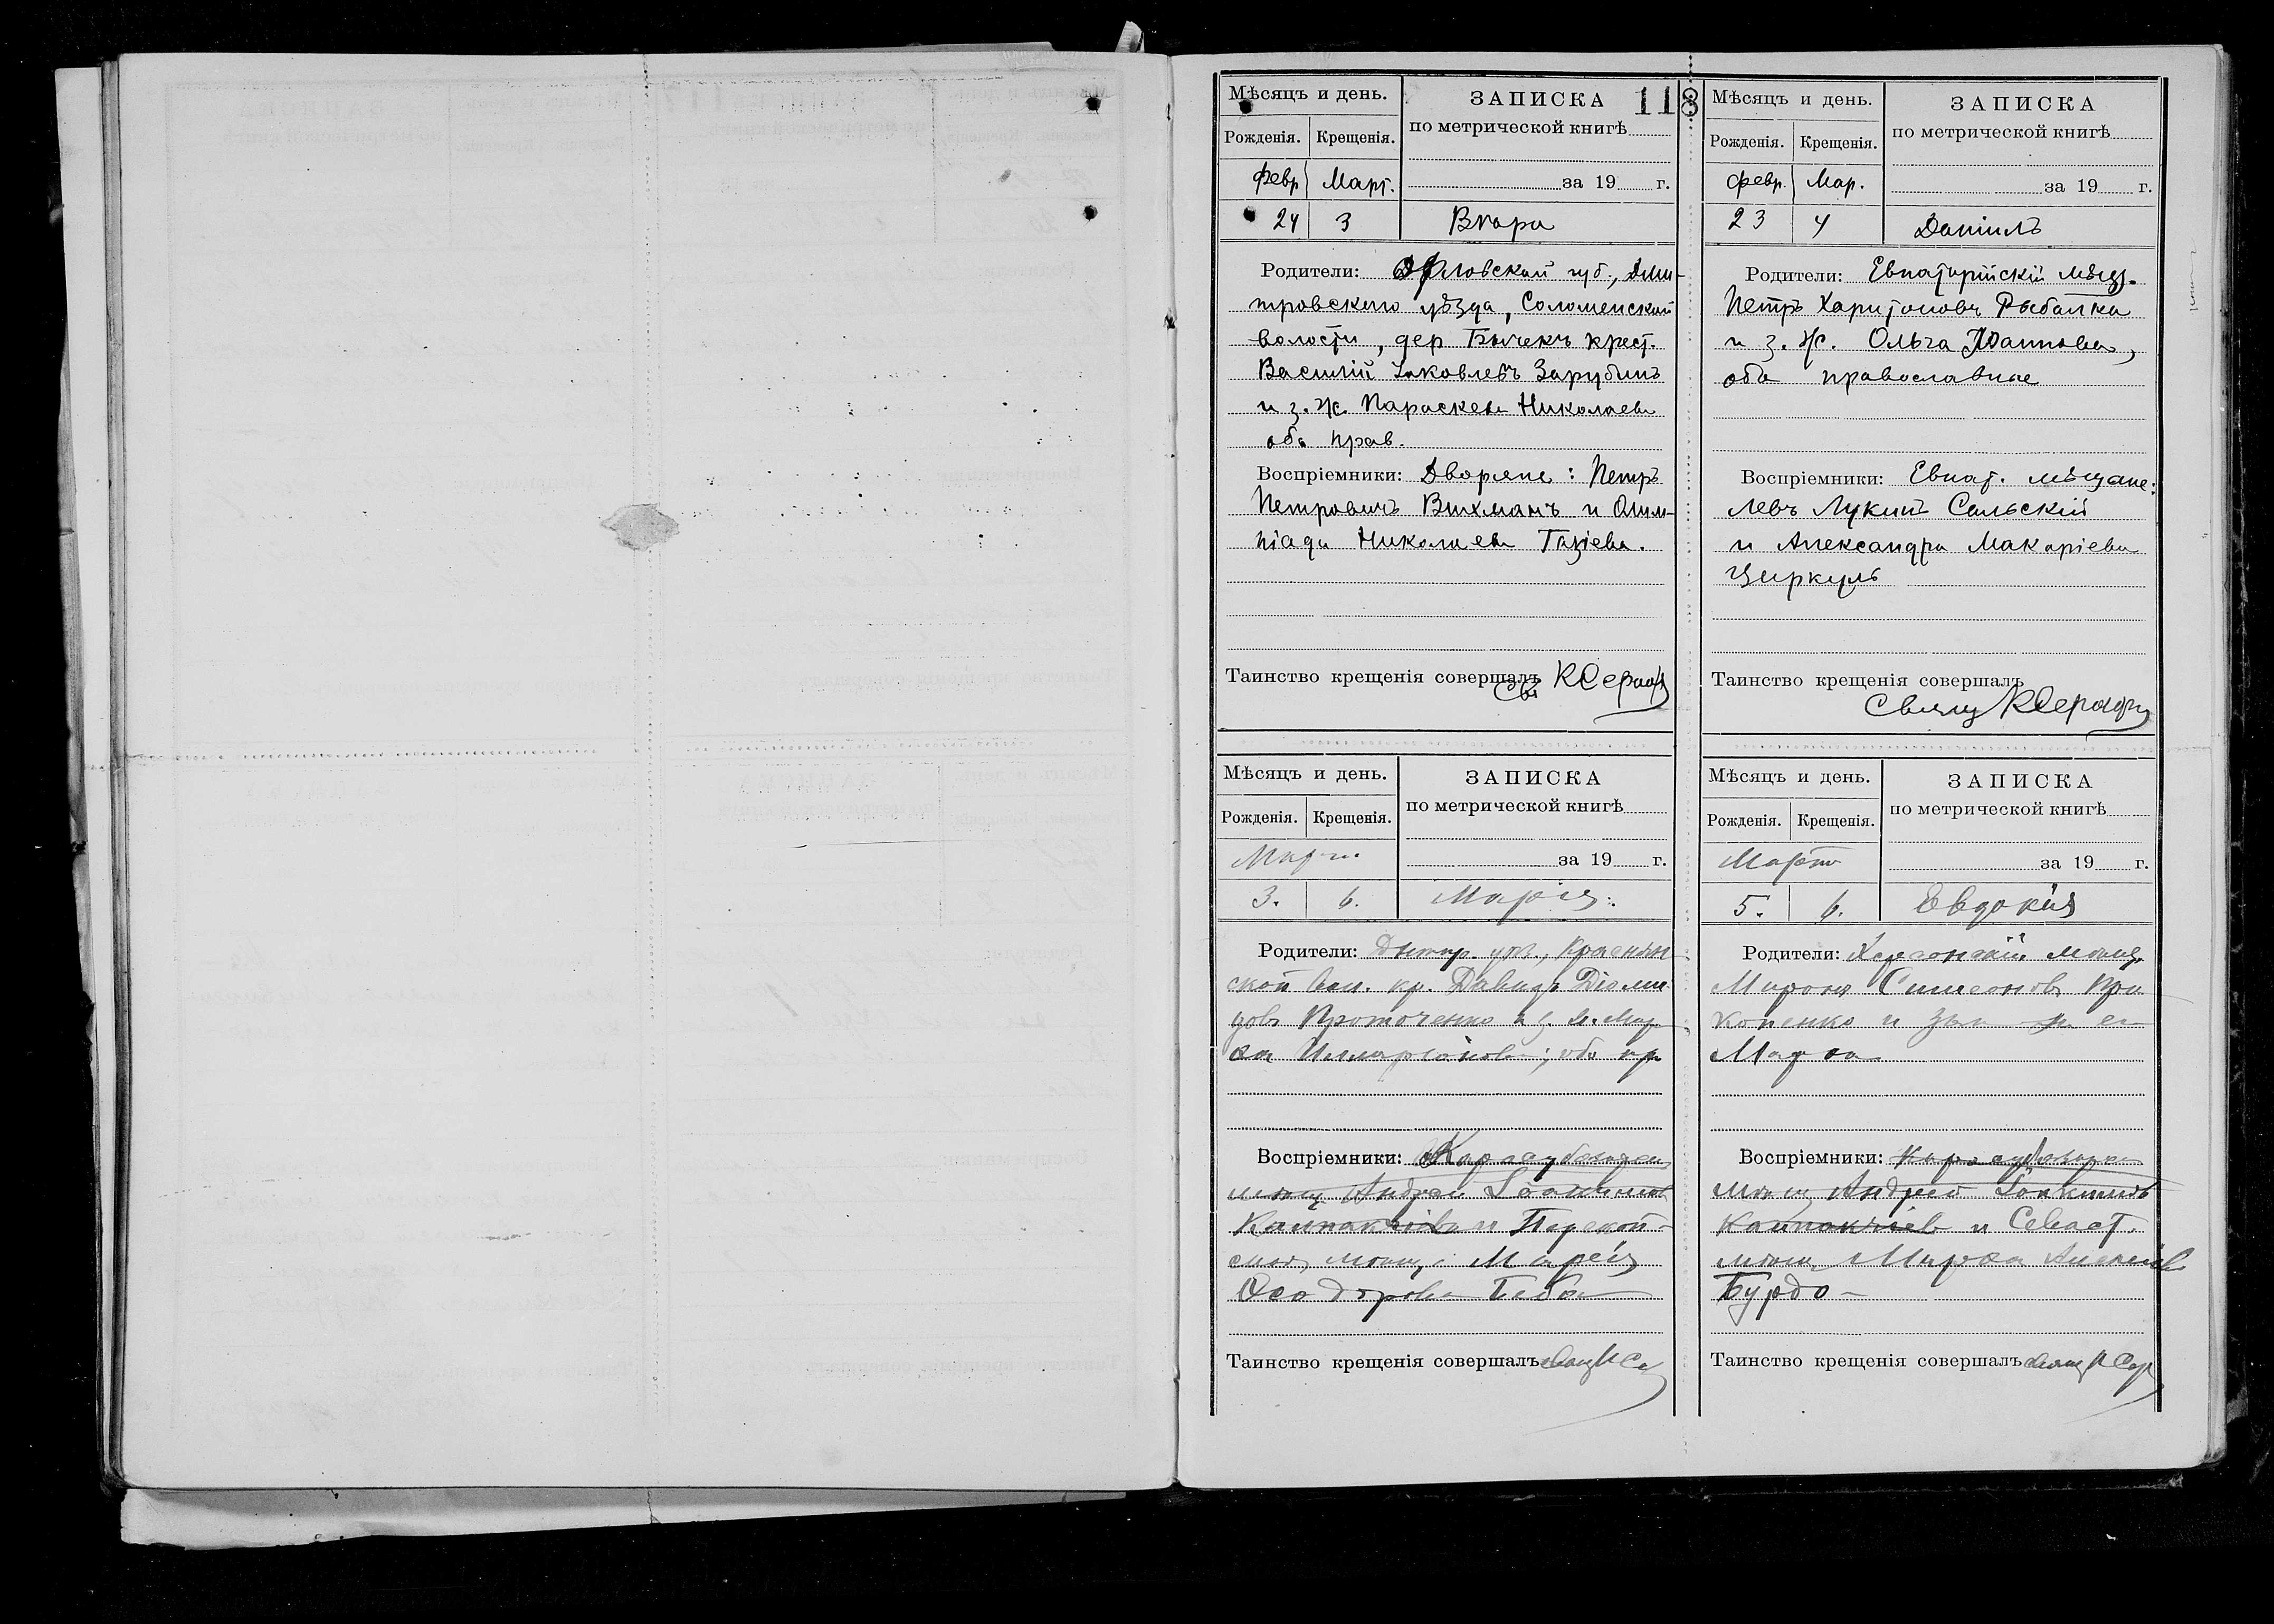 118
Мѣсяцъ и день.
ЗАПИСКА
по метрической книгѣ
Рожденія. Крещенія.
Февр Март.
за 19 г.
24 3
Вѣра
Родители: Орловской губ., Дми-
тровскаго уѣзда, Соломенской
волости, дер Бычекъ крест.
Василій Іаковлевъ Зарубинъ
и з. ж. Параскева Николаева
оба прав.
Воспріемники: Дворяне: Петръ
Петровичъ Вихманъ и Олим-
піада Николаева Газіева.
Таинство крещенія совершалъ Св КСераф
Мѣсяцъ и день.
ЗАПИСКА
по метрической книгѣ
Рожденія. Крещенія.
Февр. Мар.
за 19 г.
23 4
Даніилъ
Родители: Евпаторійскій мѣщ.
Петръ Харитоновъ Рыбалка
и з. ж. Ольга Іоаннова,
оба православные
Воспріемники: Евпат. мѣщане:
Левъ Лукинъ Сальскій
и Александра Макаріева
Циркуль
Таинство крещенія совершалъ
Свящ КСераф
Мѣсяцъ и день.
ЗАПИСКА
по метрической книгѣ
Рожденія. Крещенія.
Март
за 19 г.
3. 6.
Марія
Родители: Днѣпр. уѣз.,
ской вол. кр. Давидъ Діоми
довъ Проточенко и з. ж. Мар
ѳа Илларіонова; оба пр
Воспріемники: Карасубазарск
мѣщ Андрей Іоакимов
и Перекоп-
ская мѣщ. Марія
Ѳеодорова
Таинство крещенія совершалъ свящ
Мѣсяцъ и день.
ЗАПИСКА
по метрической книгѣ
Рожденія. Крещенія.
Мартъ
за 19 г.
5. 6.
Евдокія
Родители: Херсонскій мѣщ.
Миронъ Симеоновъ Про
копенко и зак ж ег
Марѳа
Воспріемники: Карасубазарск
мѣщ Андрей Іоакимовъ
и Севаст.
мѣщ Марѳа
Бурдо
Таинство крещенія совершалъ свящ